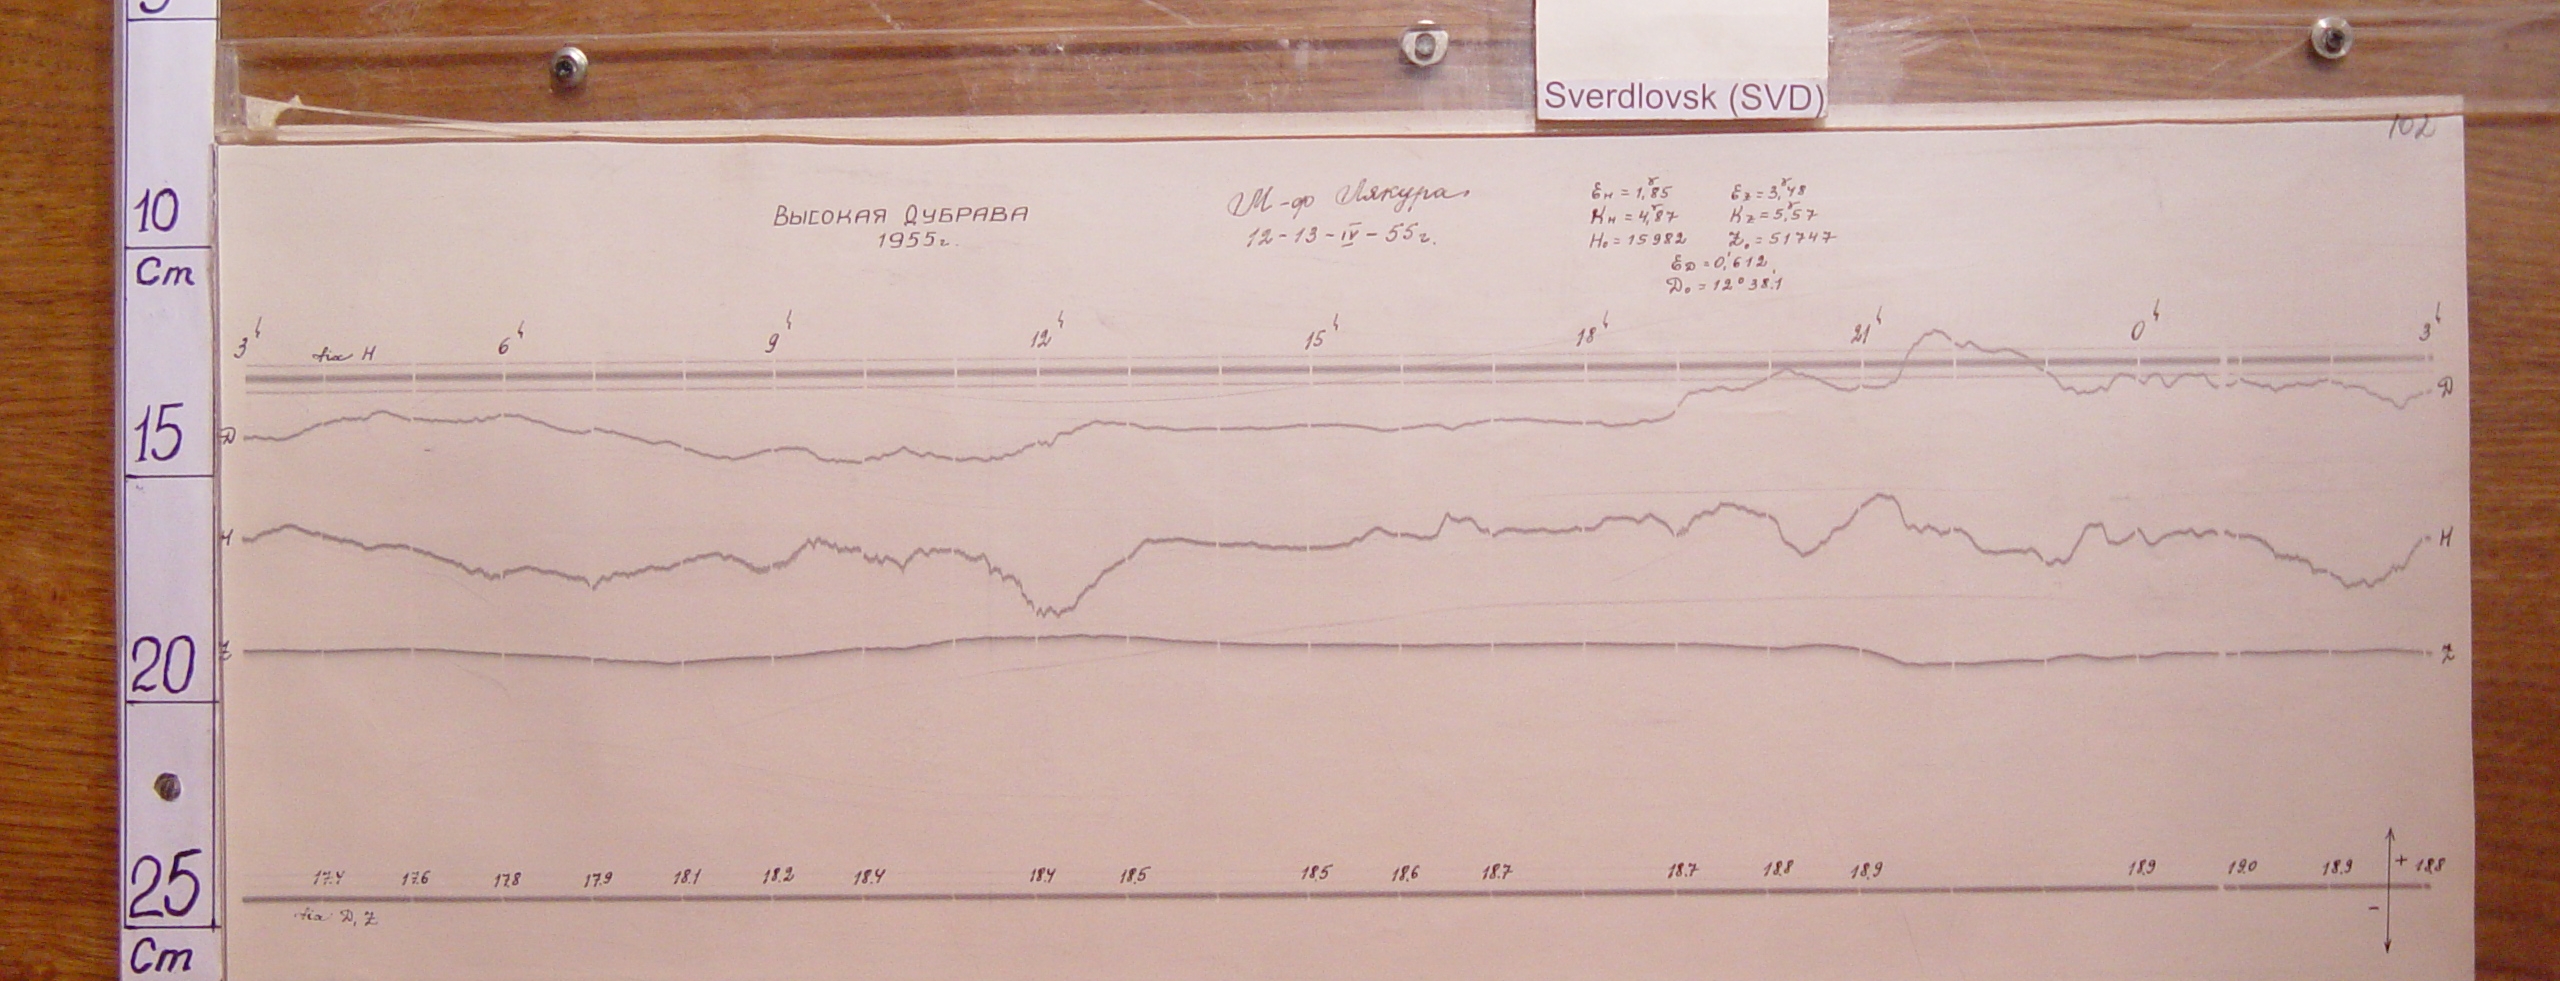 Sverdlovsk (SVD)
102
10
Cm
15
20
25
Cm
ВЫСОКАЯ ДУБРАВА
1955г.
М-ф Лякура
12-13-IV-55г.
Eн = 1,ᵞ85 Ez = 3,ᵞ48
Kн = 4,ᵞ87 Kz = 5,ᵞ57
H₀ = 15982 Z₀ = 51747
ED = 0,′612
D₀ = 12°38.′1
3ʰ 6ʰ 9ʰ 12ʰ 15ʰ 18ʰ 21ʰ 0ʰ 3ʰ
fix H
D D
H H
Z Z
17.4 17.6 17.8 17.9 18.1 18.2 18.4 18.4 18.5 18.5 18.6 18.7 18.7 18.8 18.9 18.9 19.0 18.9 + 18.8
fix D, Z -